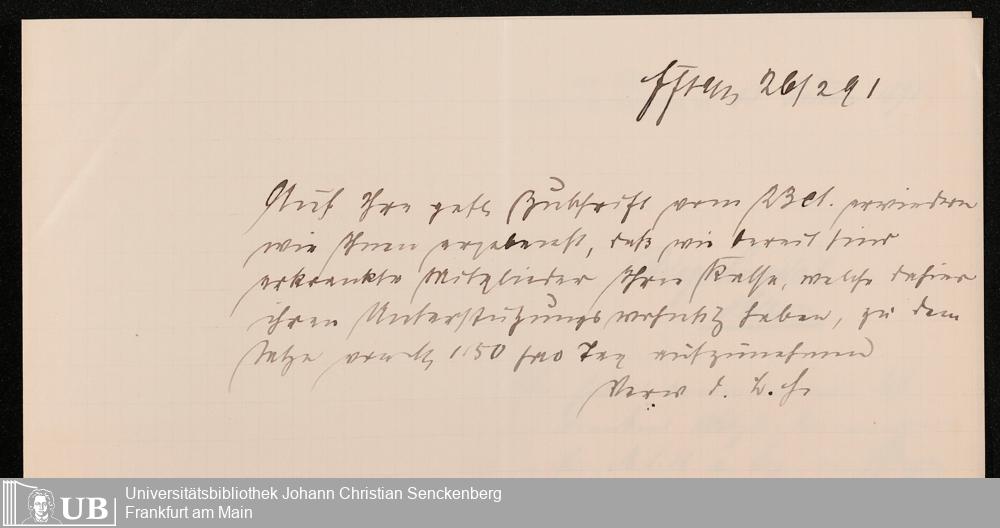 Ffta/M 26/2 91
Auf Ihre gefl. Zuschrift vom 23 ct. erwiedern
wir Ihnen ergebenst, daß wir bereit sind
erkrankte Mitglieder Ihrer Kasse, welche dahier
ihren Unterstützungswohnsitz haben, zu dem
Satze von M 1.50 pro Tag aufzunehmen
Verw d.
UB
Universitätsbibliothek Johann Christian Senckenberg
Frankfurt am Main